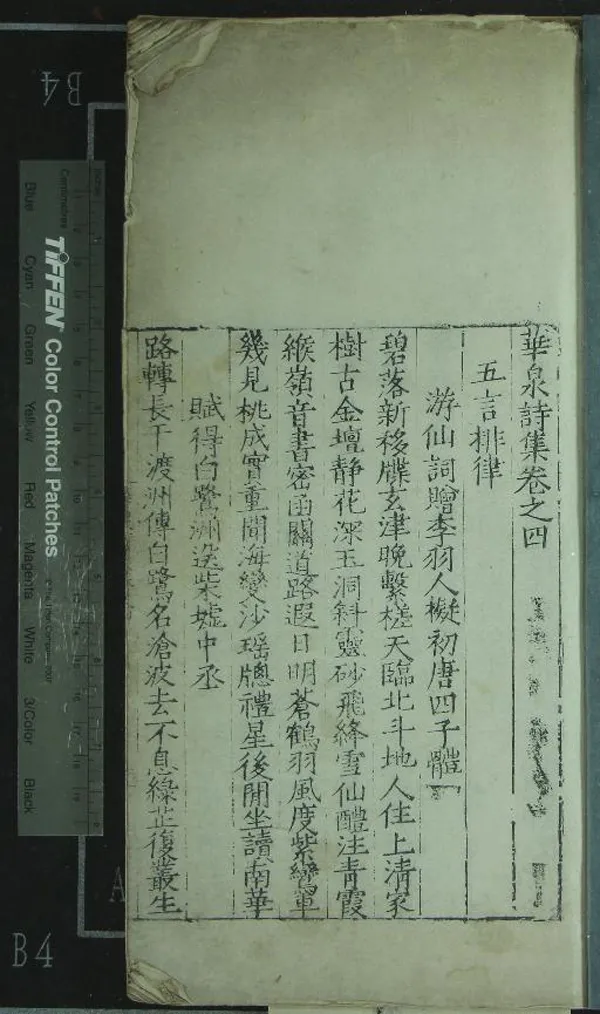 華泉詩集卷之四
五言排律
游仙詞贈李羽人擬初唐四子體一
碧落新移牒玄津晚繫槎天臨北斗地人住上清家
樹古金壇靜花深玉洞斜靈砂飛絳雪仙醴注青霞
緱嶺音書密函關道路遐日明蒼鶴羽風度紫鸞軍
幾見桃成實重聞海變沙瑤牕禮星後閒坐讀南華
賦得白鷺洲送柴墟中丞
路轉長干渡洲傳白鷺名滄波去不息綠芷復叢生
B4
B4
TIFFEN Color Control Patches
Centimetres
Inches
Blue
Cyan
Green
Yellow
Red
Magenta
White
3/Color
Black